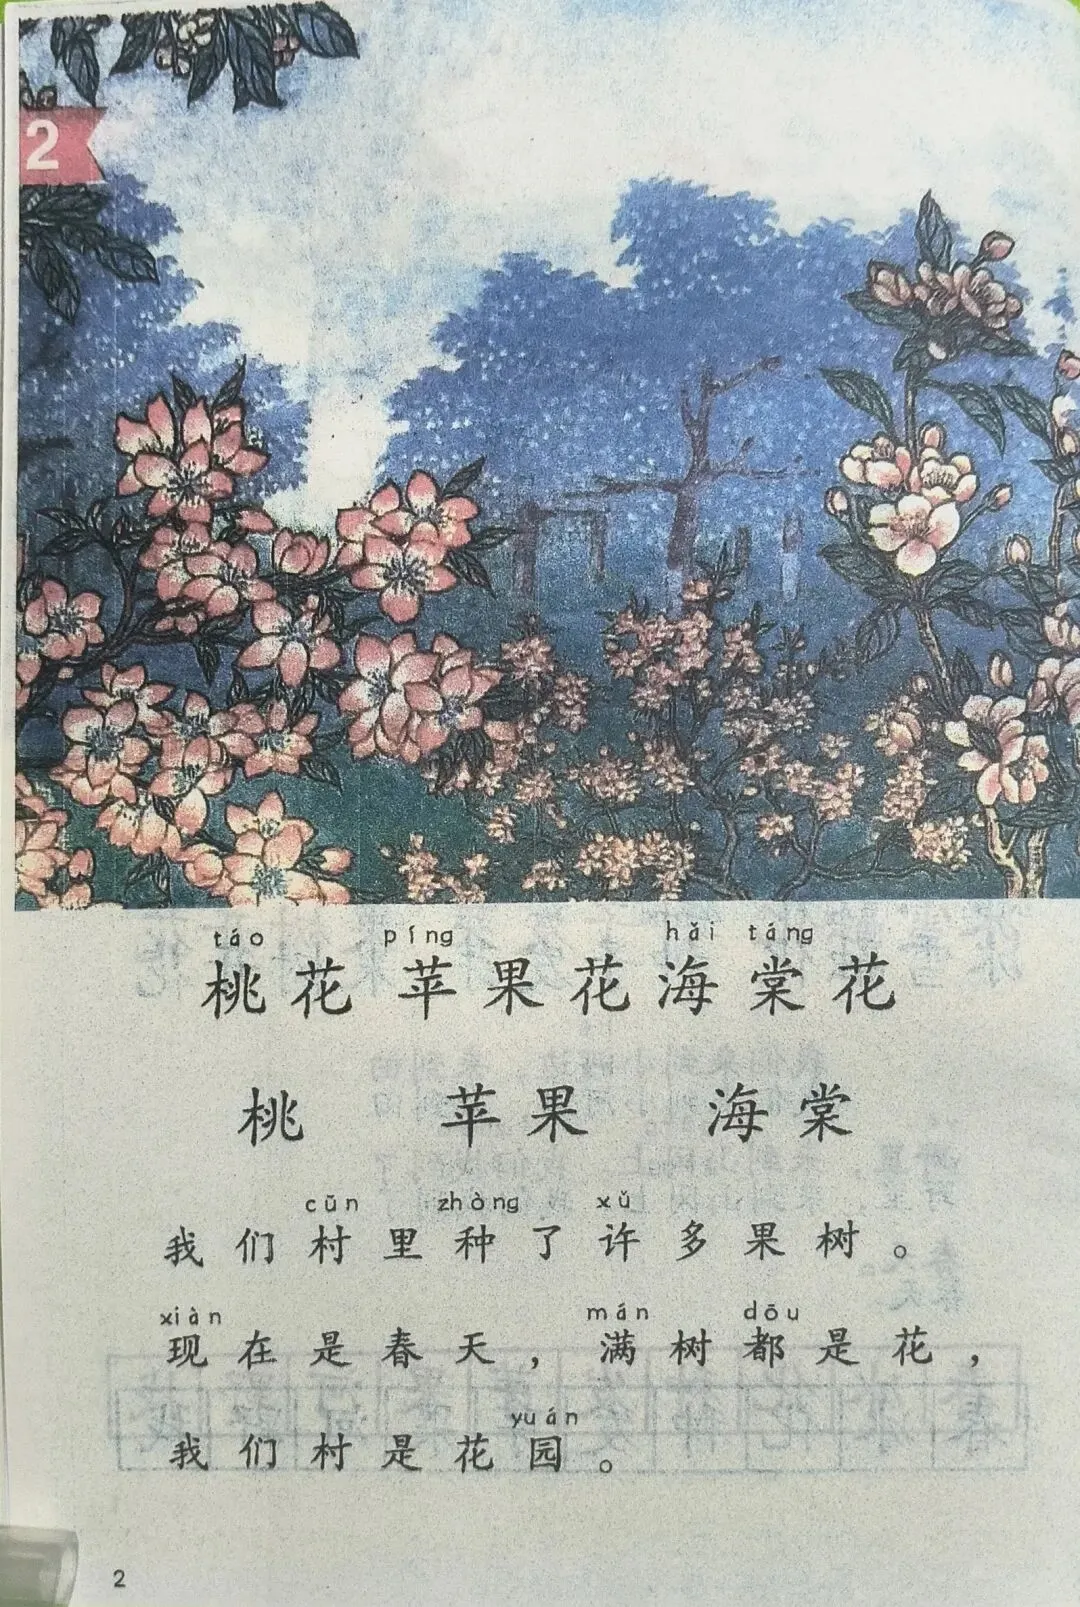 2
táo píng hǎi táng
桃花 苹果花 海棠花
桃 苹果 海棠
cūn zhòng xǔ
我们村里种了许多果树。
xiàn mǎn dōu
现在是春天，满树都是花，
yuán
我们村是花园。
2